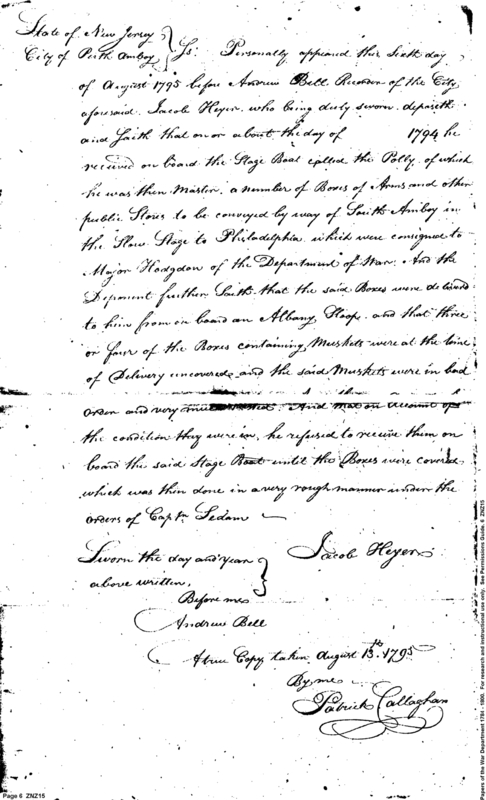 State of New Jersey
City of Perth Amboy } Ss: Personally appeared this Sixth day
of August 1795 before Andrew Bell Recorder of the City
aforesaid. Jacob Heyer, who being duly sworn, deposeth
and Saith that on or about the day of 1794 he
received on board the Stage Boat called the Polly, of which
he was then Master, a number of Boxes of Arms and other
public Stores to be conveyed by way of South Amboy in
the Slow Stage to Philadelphia, which were consigned to
Major Hodgdon of the Department of War. And the
Deponent further Saith that the said Boxes were delivered
to him from on board an Albany Sloop. and that three
or four of the Boxes containing Muskets were at the time
of Delivery uncovered and the said Muskets were in bad
order and very much rusted. And that on account of
the condition they were in, he refused to receive them on
board the said Stage Boat until the Boxes were covered.
which was then done in a very rough manner under the
orders of Captn Sedam
Sworn the day and year
above written,
Jacob Heyer
Before me
Andrew Bell
A true Copy taken August 13th. 1795
By me
Patrick Callaghan
Page 6 ZNZ15
Papers of the War Department 1784 - 1800. For research and instructional use only. See Permissions Guide. 6 ZNZ15